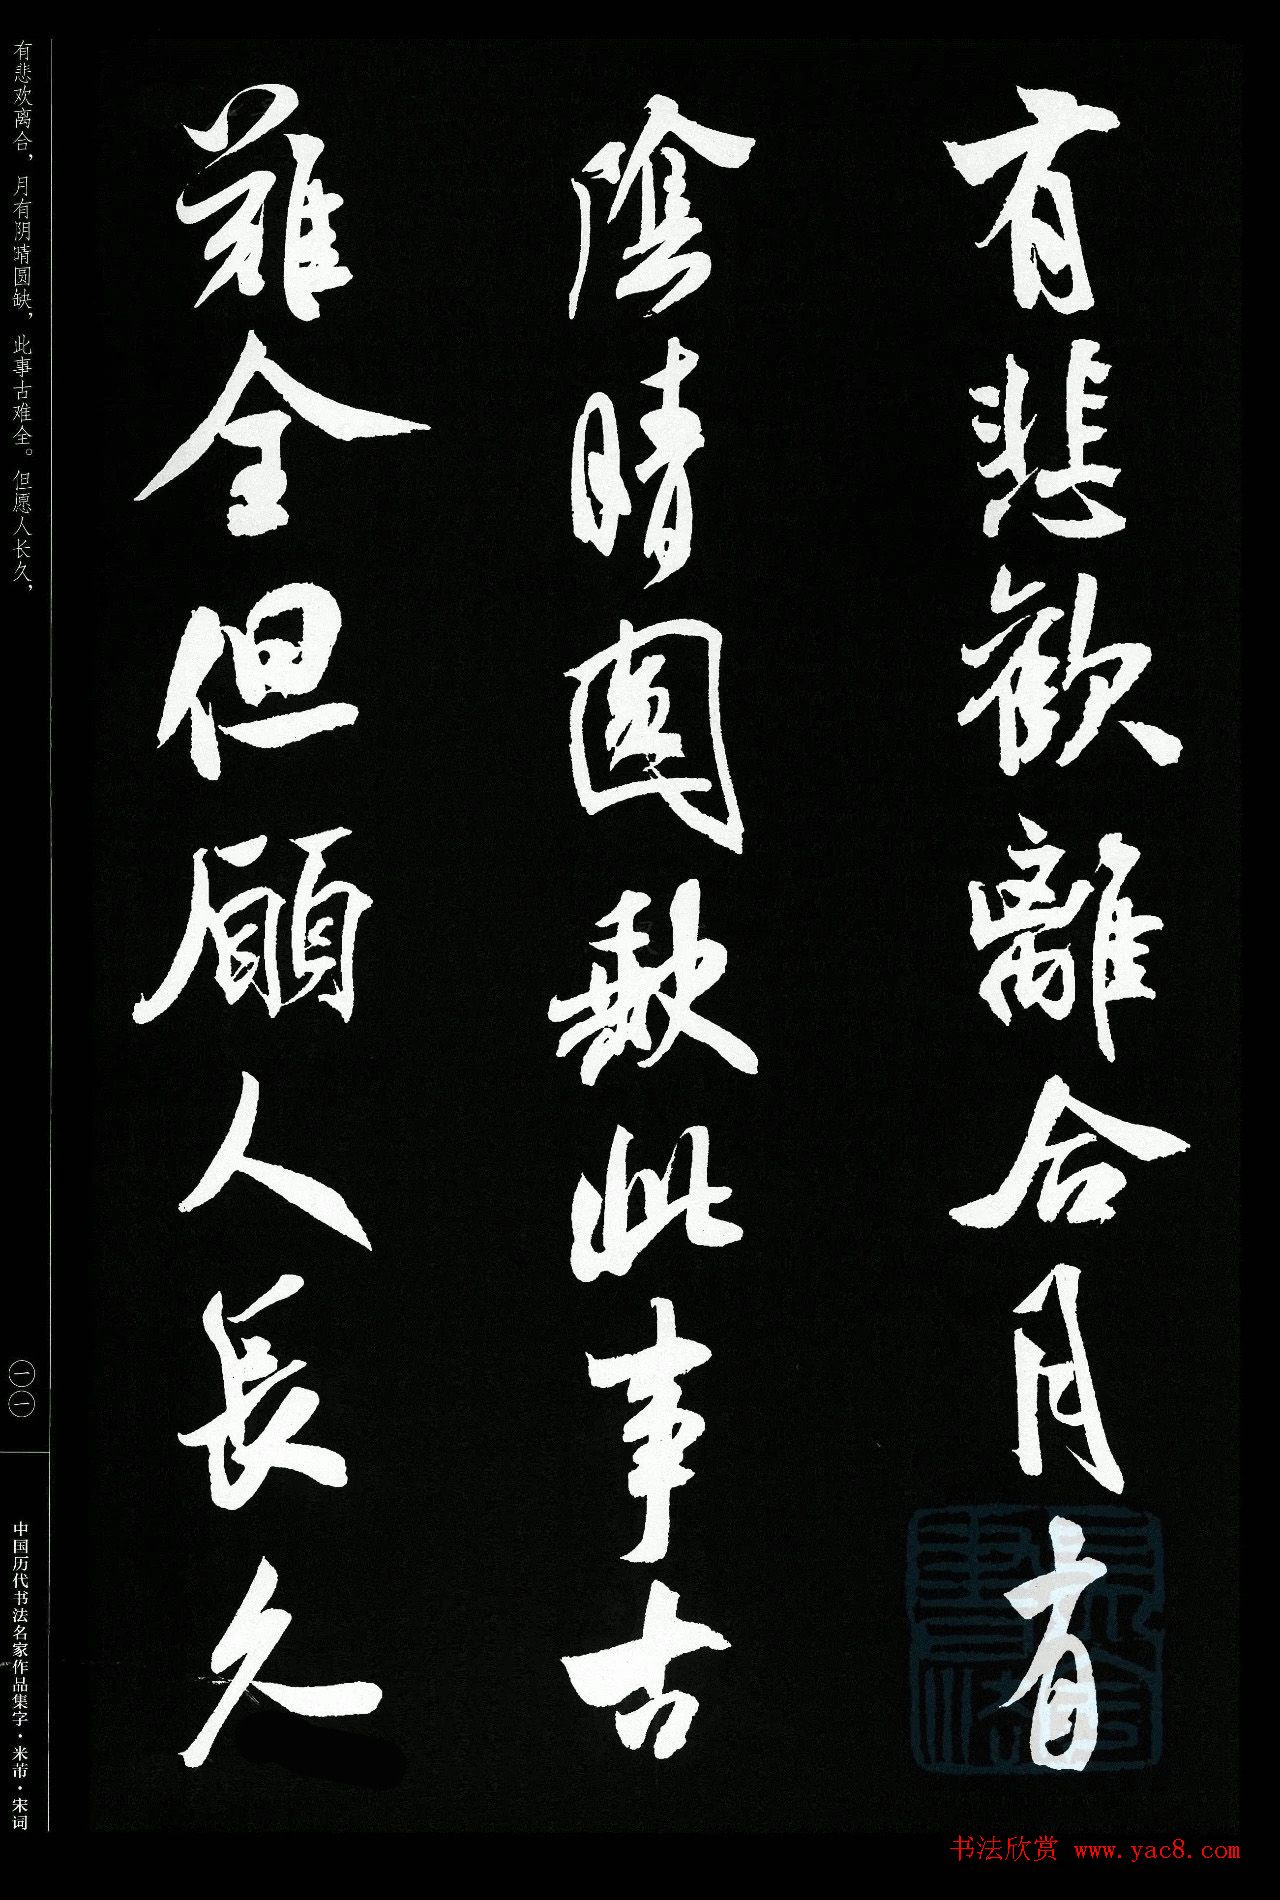 有悲歡離合月有
陰晴圓缺此事古
難全但願人長久
有悲欢离合，月有阴晴圆缺，此事古难全。但愿人长久，
一一
中国历代书法名家作品集字·米芾·宋词
书法欣赏 www.yac8.com